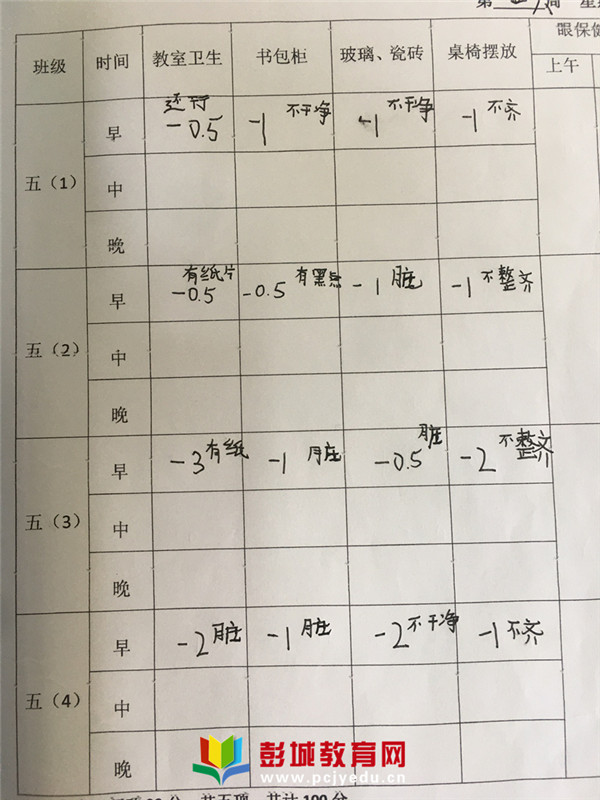 第 周 星
班级 时间 教室卫生 书包柜 玻璃、瓷砖 桌椅摆放 眼保健
上午
五（1） 早 还行 -0.5 -1 不干净 -1 不干净 -1 不齐
中
晚
五（2） 早 有纸片 -0.5 -0.5 有黑点 -1 脏 -1 不整齐
中
晚
五（3） 早 -3 有纸 -1 脏 -0.5 脏 -2 不整齐
中
晚
五（4） 早 -2 脏 -1 脏 -2 不干净 -1 不齐
中
晚
彭城教育网
www.pcjyedu.cn
分 共五项 共计100分